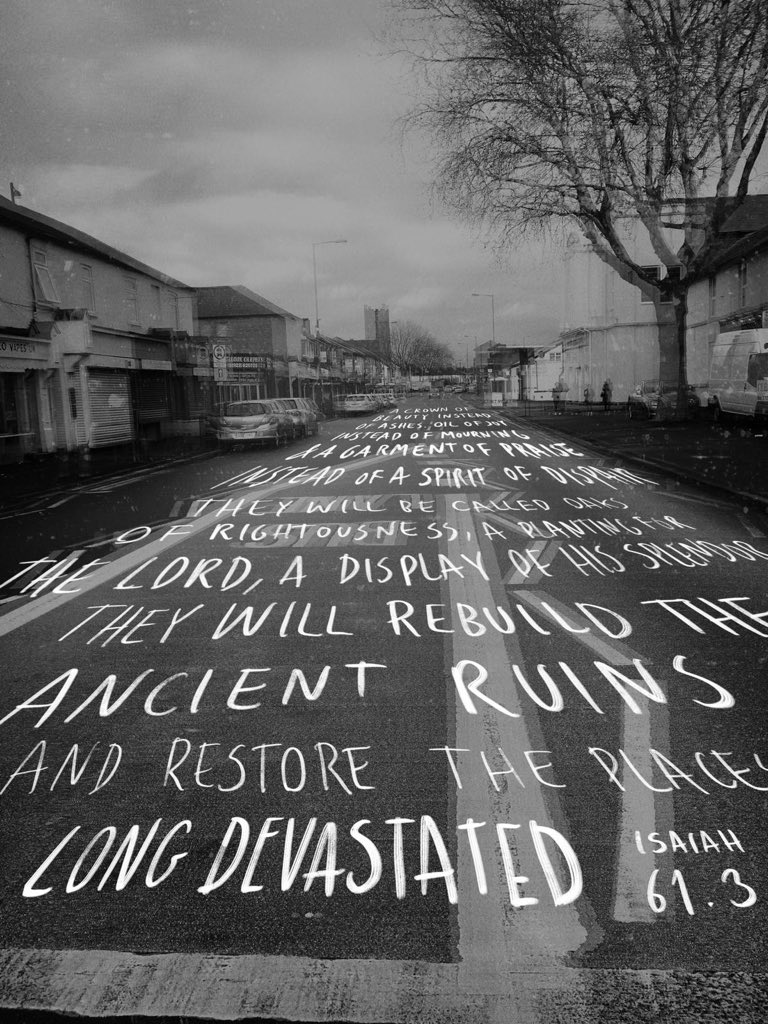 A CROWN OF
BEAUTY INSTEAD
OF ASHES, OIL OF JOY
INSTEAD OF MOURNING
& A GARMENT OF PRAISE
INSTEAD OF A SPIRIT OF DISPAIR
THEY WILL BE CALLED OAKS
OF RIGHTOUSNESS, A PLANTING FOR
THE LORD, A DISPLAY OF HIS SPLENDOR
THEY WILL REBUILD THE
ANCIENT RUINS
AND RESTORE THE PLACES
LONG DEVASTATED
ISAIAH
61.3